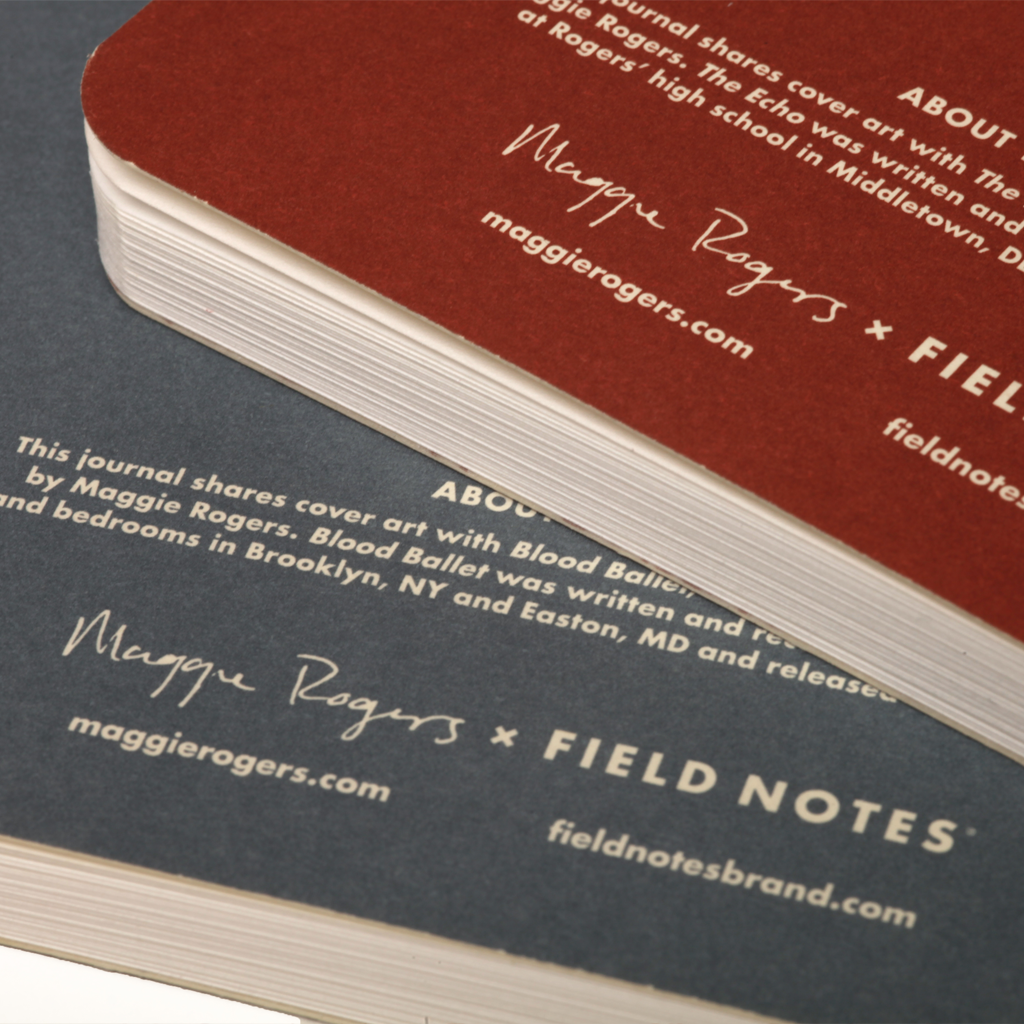 journal shares cover art with The
Maggie Rogers. The Echo was written and
at Rogers' high school in Middletown,
ABOUT
Maggie Rogers × FIEL
maggierogers.com
fieldnotes
ABOU
This journal shares cover art with Blood Ballet,
by Maggie Rogers. Blood Ballet was written and
and bedrooms in Brooklyn, NY and Easton, MD and released
Maggie Rogers × FIELD NOTES
maggierogers.com
fieldnotesbrand.com